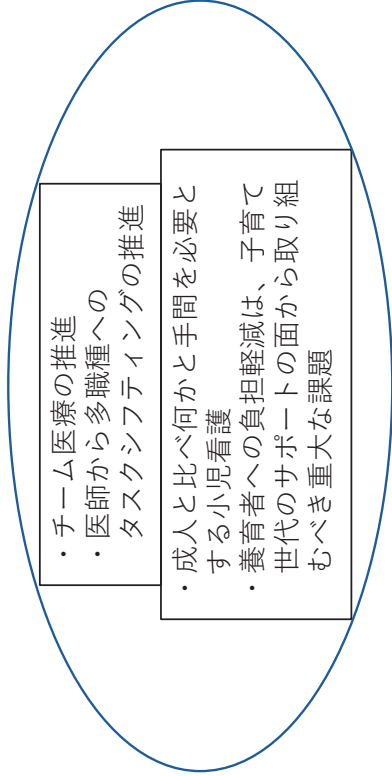 ・チーム医療の推進
・医師から多職種への
タスクシフティングの推進
・成人と比べ何かと手間を必要と
する小児看護
・養育者への負担軽減は、子育て
世代のサポートの面から取り組
むべき重大な課題